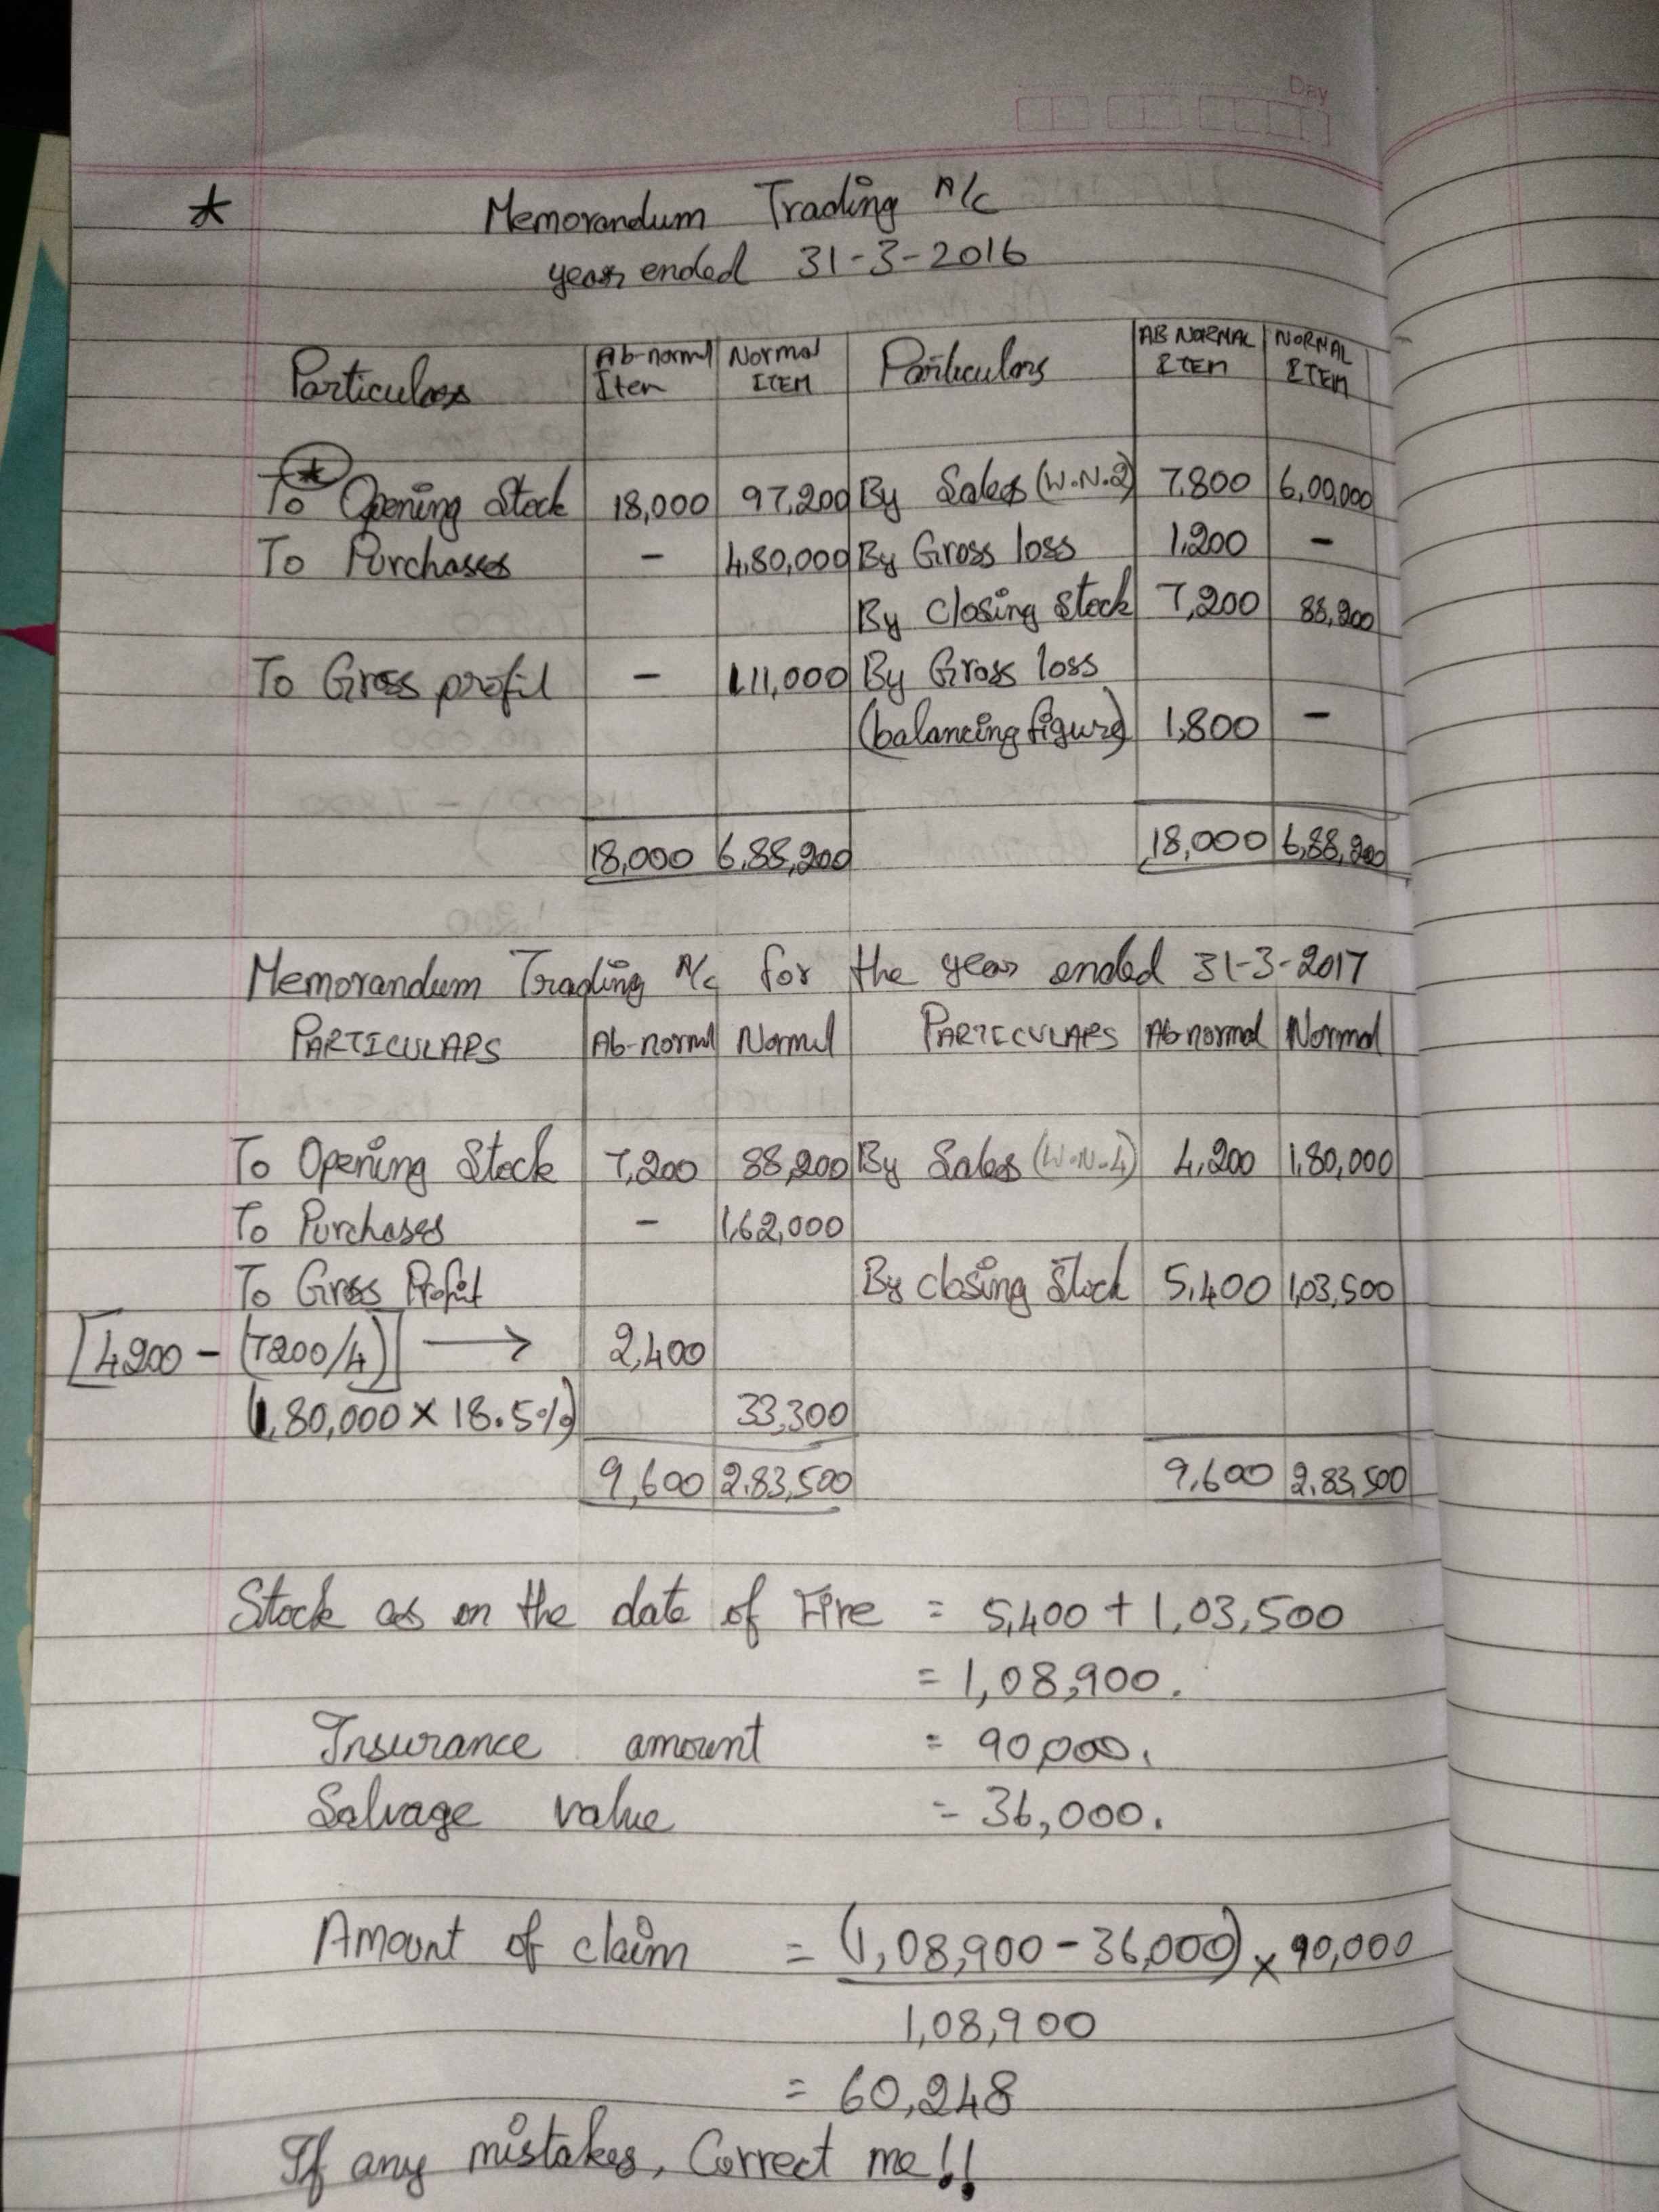 Day
* Memorandum Trading A/c
year ended 31-3-2016
Particulars Ab-normal Item Normal ITEM Particulars AB NORMAL ITEM NORMAL ITEM
To Opening Stock 18,000 97,200 By Sales (W.N.2) 7,800 6,00,000
To Purchases - 4,80,000 By Gross loss 1,200 -
By Closing Stock 7,200 88,200
To Gross profit - 1,11,000 By Gross loss
(balancing figure) 1,800 -
18,000 6,88,200 18,000 6,88,200
Memorandum Trading A/c for the year ended 31-3-2017
PARTICULARS Ab-normal Normal PARTICULARS Ab normal Normal
To Opening Stock 7,200 88,200 By Sales (W.N.4) 4,200 1,80,000
To Purchases - 1,62,000
To Gross Profit By closing Stock 5,400 1,03,500
[4200 - (7200/4)] → 2,400
(1,80,000 × 18.5%) 33,300
9,600 2,83,500 9,600 2,83,500
Stock as on the date of Fire = 5,400 + 1,03,500
= 1,08,900.
Insurance amount = 90,000.
Salvage value = 36,000.
Amount of claim = (1,08,900 - 36,000) × 90,000
1,08,900
= 60,248
If any mistakes, Correct me!!